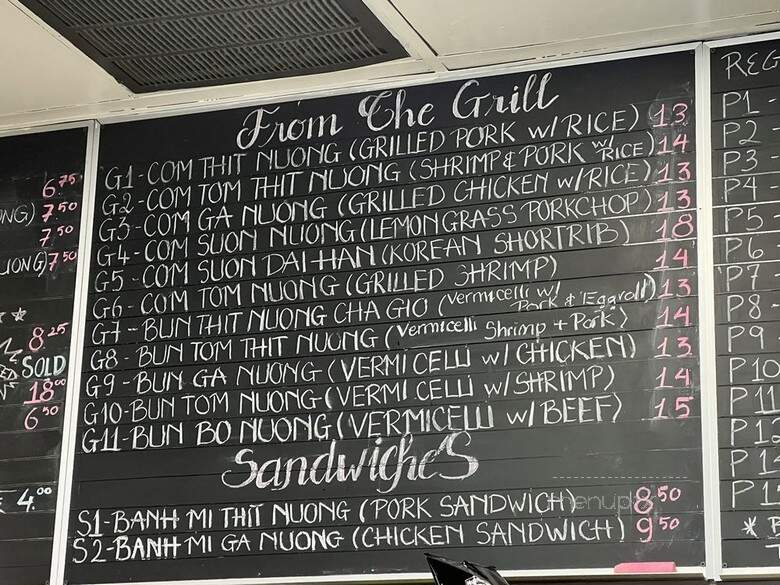 From The Grill
G1-COM THIT NUONG (GRILLED PORK W/RICE) 13
G2-COM TOM THIT NUONG (SHRIMP & PORK W/RICE) 14
G3-COM GA NUONG (GRILLED CHICKEN W/RICE) 13
G4-COM SUON NUONG (LEMONGRASS PORKCHOP) 13
G5-COM SUON DAI HAN (KOREAN SHORTRIB) 18
G6-COM TOM NUONG (GRILLED SHRIMP) 14
G7-BUN THIT NUONG CHA GIO (Vermicelli w/ Pork & Eggroll) 13
G8-BUN TOM THIT NUONG (Vermicelli Shrimp + Pork) 14
G9-BUN GA NUONG (VERMICELLI W/CHICKEN) 13
G10-BUN TOM NUONG (VERMICELLI W/SHRIMP) 14
G11-BUN BO NUONG (VERMICELLI W/BEEF) 15
Sandwiches
S1-BANH MI THIT NUONG (PORK SANDWICH) 8.50
S2-BANH MI GA NUONG (CHICKEN SANDWICH) 9.50
6.75
NG) 7.50
7.50
UONG) 7.50
8.25
SOLD
18.00
6.50
4.00
REG
P1
P2
P3
P4
P5
P6
P7
P8
P9
P10
P11